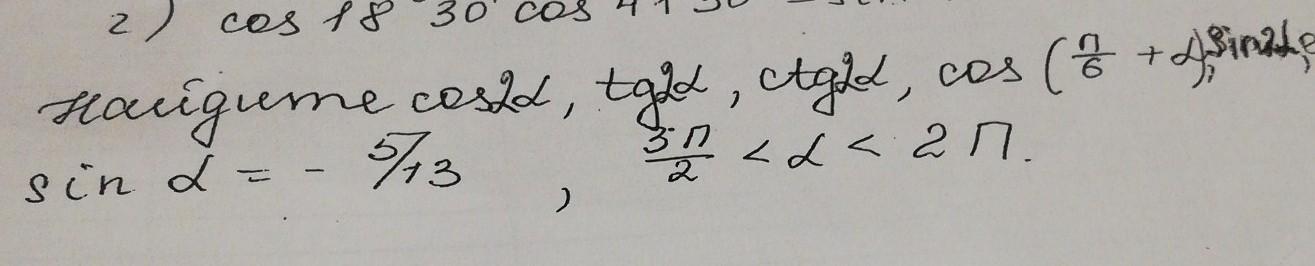 2) cos 18°30' cos
найдите cos2α, tg2α, ctg2α, cos (π/6 + α), sin2α,
sin α = - 5/13 , 3π/2 < α < 2π.